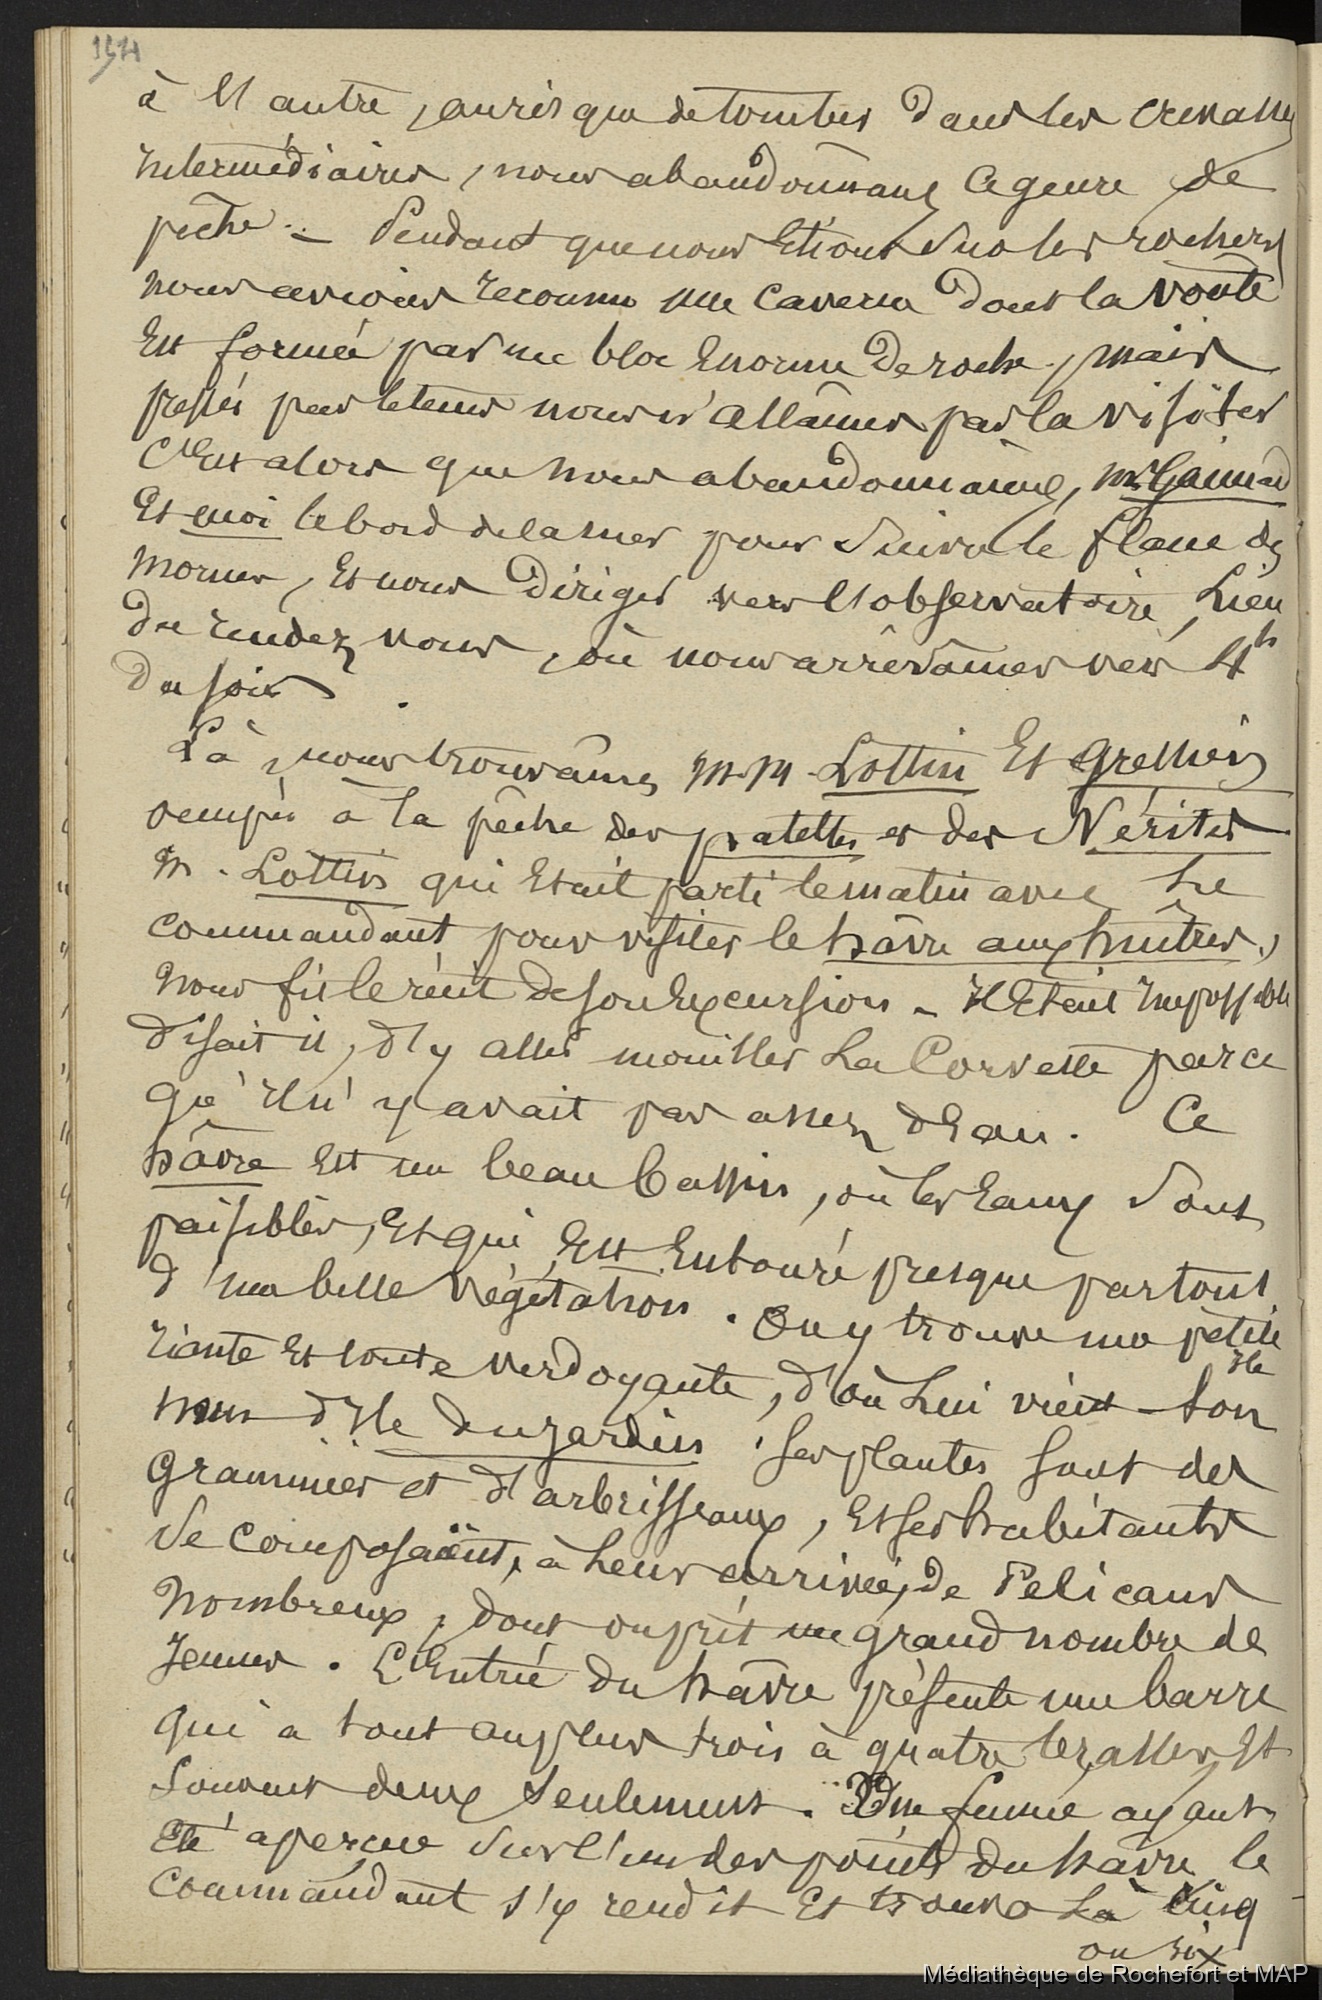 194
à l'autre, au risque de tomber dans les crevasses
intermédiaires, nous abandonnans ce genre de
pêche. — Pendant que nous étions sur les rochers
nous avions reconnu une caverne dont la voûte
est formée par un bloc énorme de roche, mais
pressés par le tems nous n'allâmes pas la visiter
C'est alors que nous abandonnâmes, Mr Gaimard
et moi le bord de la mer pour suivre le flanc des
mornes, et nous diriger vers l'observatoire, lieu
du rendez vous, où nous arrêvâmes vers 4h
du soir.
Là, nous trouvâmes M.M. Lottin et Gressien
occupés à la pêche des patelles et des Nérites
M. Lottin qui était parti le matin avec le
commandant pour visiter le hâvre aux huîtres,
nous fit le récit de son excursion — Il était impossible
disait il, d'y aller mouiller la Corvette parce
qu'il n'y avait pas assez d'eau. Ce
hâvre est un beau bassin, où les eaux sont
paisibles, et qui est entouré presque partout
d'une belle végétation. On y trouve une petite Ile
riante et toute verdoyante, d'où lui vient son
nom d'Ile du jardin. Ses plantes sont des
graminées et d'arbrisseaux, et ses habitants
se composaient, à leur arrivée, de Pelicans
nombreux, dont on prit un grand nombre de
jeunes. L'entrée du hâvre présente une barre
qui a tout au plus trois à quatre brasses et
souvent deux seulement. Une fumée ayant
été aperçue sur l'un des points du hâvre, le
commandant s'y rendit et trouva là cinq
ou six
Médiathèque de Rochefort et MAP